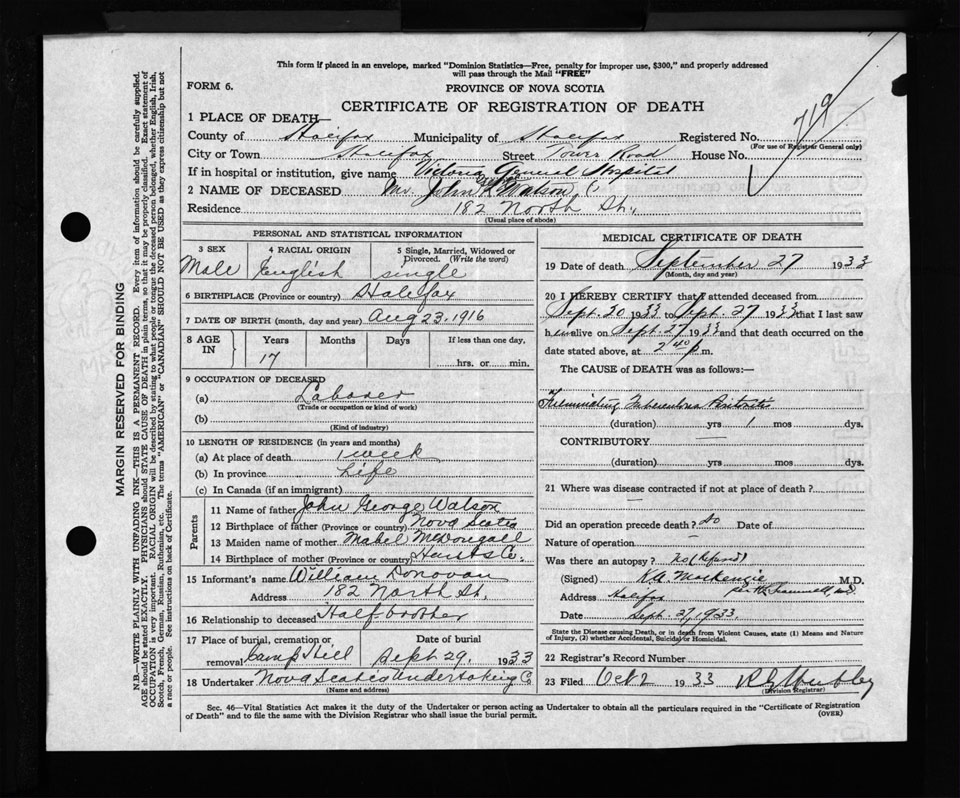 This form if placed in an envelope, marked "Dominion Statistics—Free, penalty for improper use, $300," and properly addressed
will pass through the Mail "FREE"
FORM 6.
PROVINCE OF NOVA SCOTIA
CERTIFICATE OF REGISTRATION OF DEATH
719
1 PLACE OF DEATH—
County of Halifax Municipality of Halifax Registered No.
(For use of Registrar General only)
City or Town Halifax Street Tower Road House No.
If in hospital or institution, give name Victoria General Hospital
2 NAME OF DECEASED Mr. John Watson
Residence 182 North St.,
(Usual place of abode)
PERSONAL AND STATISTICAL INFORMATION
3 SEX
Male
4 RACIAL ORIGIN
English
5 Single, Married, Widowed or
Divorced. (Write the word)
single
6 BIRTHPLACE (Province or country) Halifax
7 DATE OF BIRTH (month, day and year) Aug 23. 1916
8 AGE IN
Years Months Days If less than one day,
17
hrs. or min.
9 OCCUPATION OF DECEASED
(a) Laborer
(Trade or occupation or kind of work)
(b)
(Kind of industry)
10 LENGTH OF RESIDENCE (in years and months)
(a) At place of death 1 week
(b) In province Life
(c) In Canada (if an immigrant)
Parents
11 Name of father John George Watson
12 Birthplace of father (Province or country) Nova Scotia
13 Maiden name of mother Mabel McDougall
14 Birthplace of mother (Province or country) Hants Co.
15 Informant's name William Donovan
Address 182 North St.
16 Relationship to deceased Half-brother
17 Place of burial, cremation or
removal Camp Hill
Date of burial
Sept 29. 1933
18 Undertaker Nova Scotia Undertaking Co
(Name and address)
MEDICAL CERTIFICATE OF DEATH
19 Date of death September 27 1933
(Month, day and year)
20 I HEREBY CERTIFY that I attended deceased from
Sept. 20 1933 to Sept. 27 1933 that I last saw
him alive on Sept. 27 1933 and that death occurred on the
date stated above, at 2 40 p.m.
The CAUSE of DEATH was as follows:—
Fulminating Tuberculous
(duration) yrs 1 mos dys.
CONTRIBUTORY
(duration) yrs mos dys.
21 Where was disease contracted if not at place of death?
Did an operation precede death? No Date of
Nature of operation
Was there an autopsy? No (Refused)
(Signed) K.A. MacKenzie M.D.
Address Halifax
Date Sept. 27, 1933.
State the Disease causing Death, or in death from Violent Causes, state (1) Means and Nature
of Injury, (2) whether Accidental, Suicidal or Homicidal.
22 Registrar's Record Number
23 Filed Oct 2 1933
(Division Registrar)
Sec. 46—Vital Statistics Act makes it the duty of the Undertaker or person acting as Undertaker to obtain all the particulars required in the "Certificate of Registration
of Death" and to file the same with the Division Registrar who shall issue the burial permit.
(OVER)
MARGIN RESERVED FOR BINDING
N.B.—WRITE PLAINLY WITH UNFADING INK—THIS IS A PERMANENT RECORD. Every item of information should be carefully supplied.
AGE should be stated EXACTLY. PHYSICIANS should STATE CAUSE OF DEATH in plain terms, so that it may be properly classified. Exact statement of
OCCUPATION is very important. RACIAL ORIGIN will be described by stating to what people or tongue the deceased person belonged, whether English, Irish,
Scotch, French, German, Russian, Ruthenian, etc. The terms "AMERICAN" or "CANADIAN" SHOULD NOT BE USED as they express citizenship but not
a race or people. See instructions on back of Certificate.